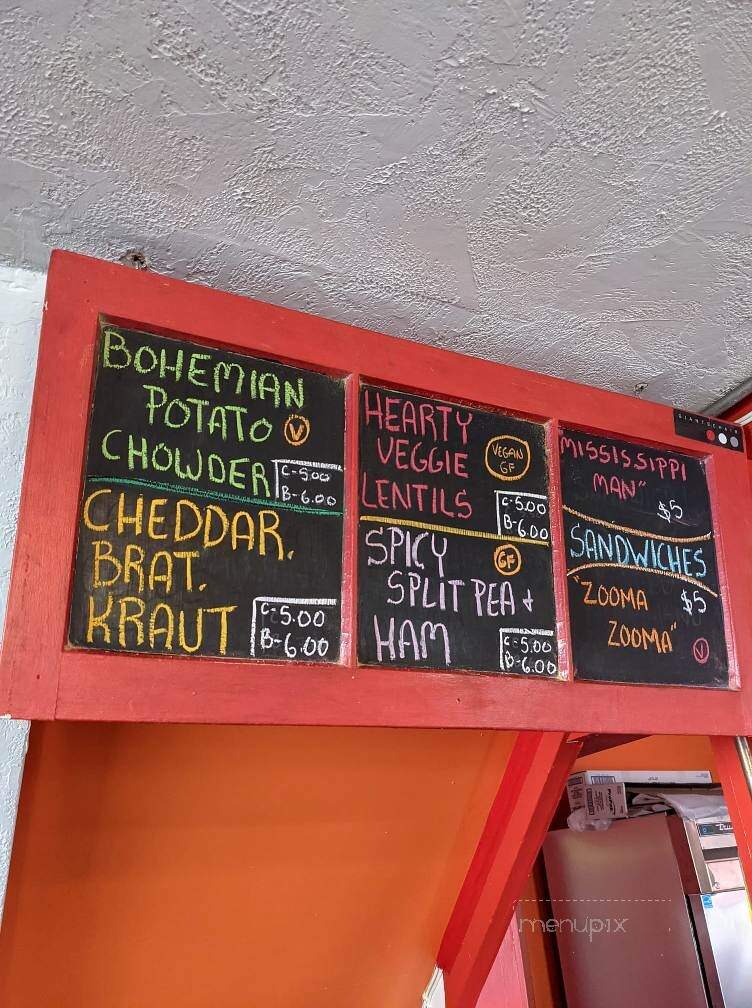 BOHEMIAN
POTATO V
CHOWDER
C-5.00
B-6.00
CHEDDAR,
BRAT,
KRAUT
C-5.00
B-6.00
HEARTY
VEGGIE
LENTILS
VEGAN
GF
C-5.00
B-6.00
SPICY GF
SPLIT PEA +
HAM
C-5.00
B-6.00
MISSISSIPPI
MAN"
$5
SANDWICHES
"ZOOMA $5
ZOOMA"
V
menupix